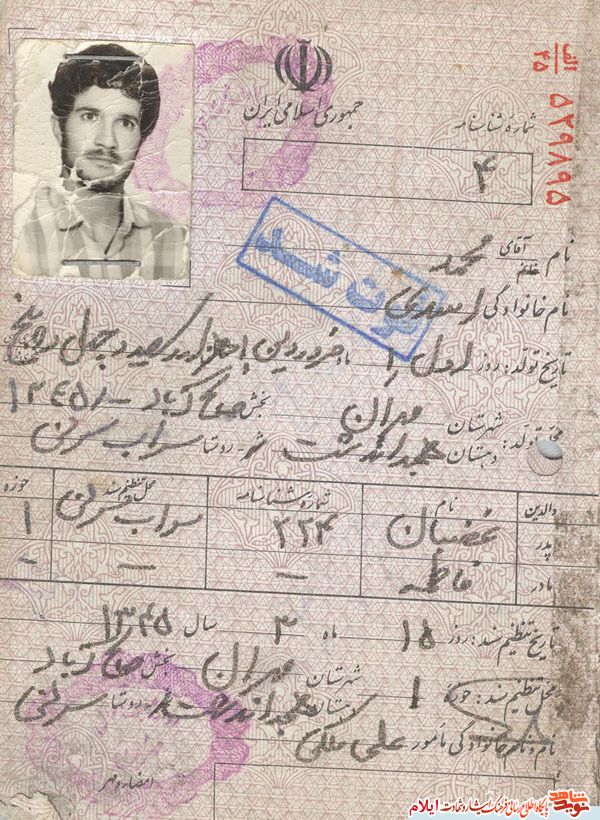 الف
۴۵
۵۲۹۸۹۵
جمهوری اسلامی ایران
شمارهٔ شناسنامه
۴
نام آقای خانم محمد
نام خانوادگی اسدی
فوت شد
تاریخ تولد: روز اول ۱ ماه فروردین یکهزار و سیصد و چهل و پنج
۱۳۴۵/۱
محل تولد: شهرستان مهران بخش صالح آباد
دهستان روستا سراب
والدین نام شمارهٔ شناسنامه محل تنظیم سند حوزه
پدر غضبان ۲۲۴ سراب ۱
مادر فاطمه – – –
تاریخ تنظیم سند: روز ۱۵ ماه ۳ سال ۱۳۴۵
محل تنظیم سند: حوزه ۱ شهرستان مهران بخش صالح آباد
دهستان روستا
نام و نام خانوادگی مأمور علی ملکی
امضاء و مهر
نوید شاهد
پایگاه اطلاع رسانی فرهنگ ایثار و شهادت ایلام